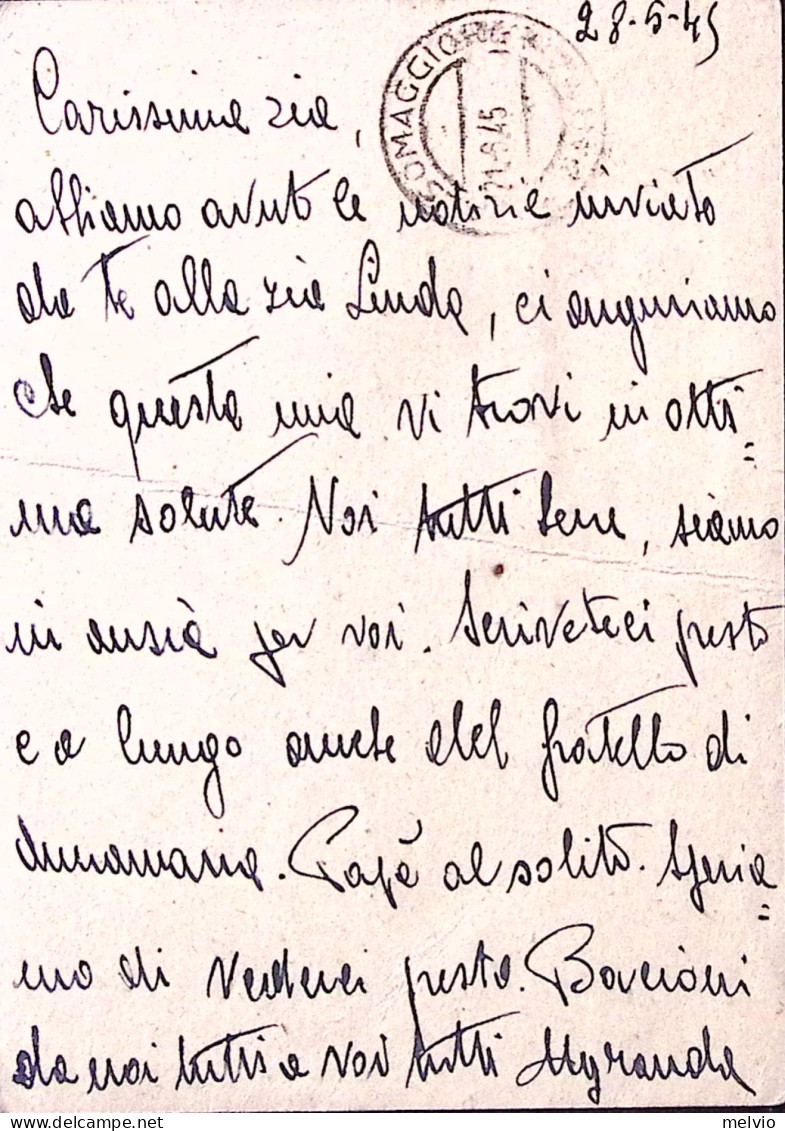 28-5-45
SOMAGGIORE
21-6-45
Carissima zia,
abbiamo avuto le notizie inviate
da te alla zia Linda, ci auguriamo
che questa mia vi trovi in otti=
ma salute. Noi tutti bene, siamo
in ansia per voi. Scriveteci presto
e a lungo anche del fratello di
Annamaria. Papà al solito. Speria=
mo di vederci presto. Bacioni
da noi tutti a voi tutti Myranda
melvio